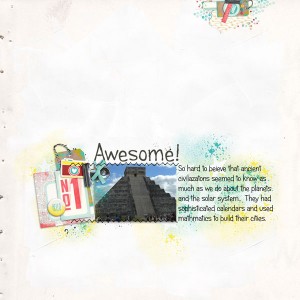 Awesome!
So hard to believe that ancient
civilazations seemed to know as
much as we do about the planets
and the solar system. They had
sophisticated calendars and used
mathmatics to build their cities.
NO
1